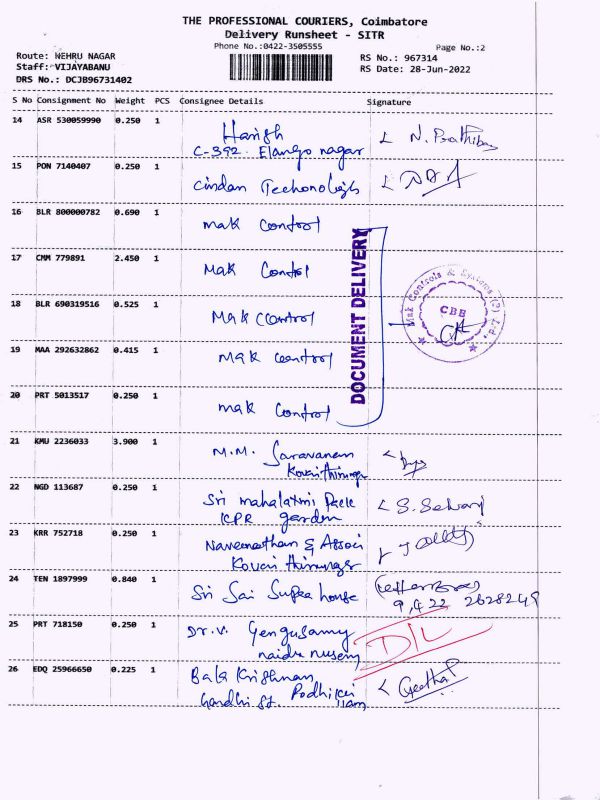 THE PROFESSIONAL COURIERS, Coimbatore
Delivery Runsheet - SITR
Phone No.:0422-3505555
Page No.:2
Route: NEHRU NAGAR
Staff: VIJAYABANU
DRS No.: DCJB96731402
RS No.: 967314
RS Date: 28-Jun-2022
S No Consignment No Weight PCS Consignee Details Signature
14 ASR 530059990 0.250 1 Harish
C-392. Elango nagar
15 PON 7140407 0.250 1 Cindan Techonologish
16 BLR 800000782 0.690 1 mak Control
17 CMM 779891 2.450 1 Mak Control
18 BLR 690319516 0.525 1 Mak CControl
19 MAA 292632862 0.415 1 Mak Control
20 PRT 5013517 0.250 1 mak Control
DOCUMENT DELIVERY
Mak Controls & Systems (P) Ltd.
CBE
21 KMU 2236033 3.900 1 M.M. Saravanan
22 NGD 113687 0.250 1 Sri mahalaxmi Pack S. Selvaraj
KPR garden
23 KRR 752718 0.250 1 Naveenathan & Associ
24 TEN 1897999 0.840 1 Sri Sai Supra house (Letter Box)
25 PRT 718150 0.250 1 Dr. V. Yengusamy D/L
26 EDQ 25966650 0.225 1 Bala Krishnan Geetha
Gandhi St.